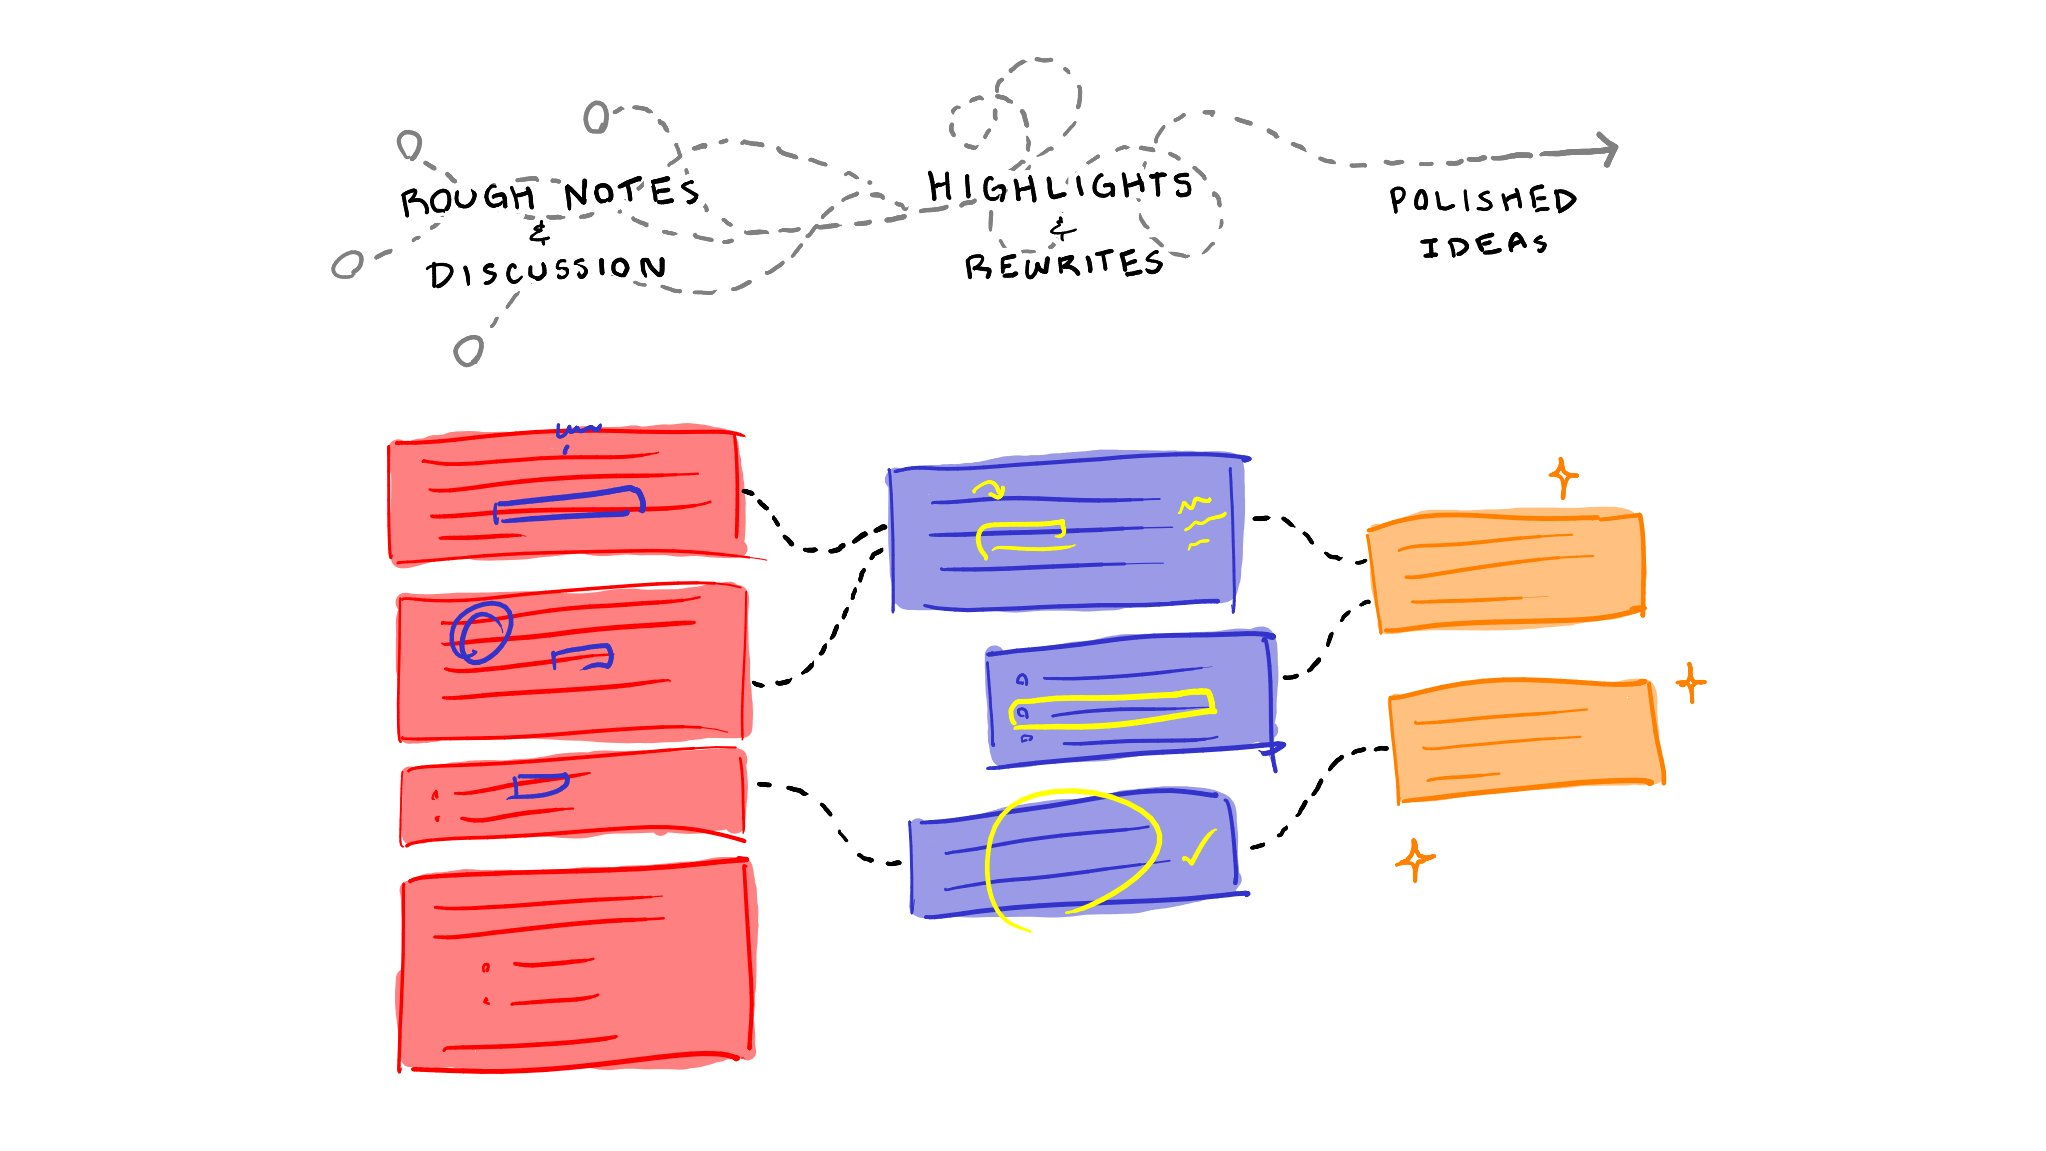 ROUGH NOTES
&
DISCUSSION
HIGHLIGHTS
&
REWRITES
POLISHED
IDEAS